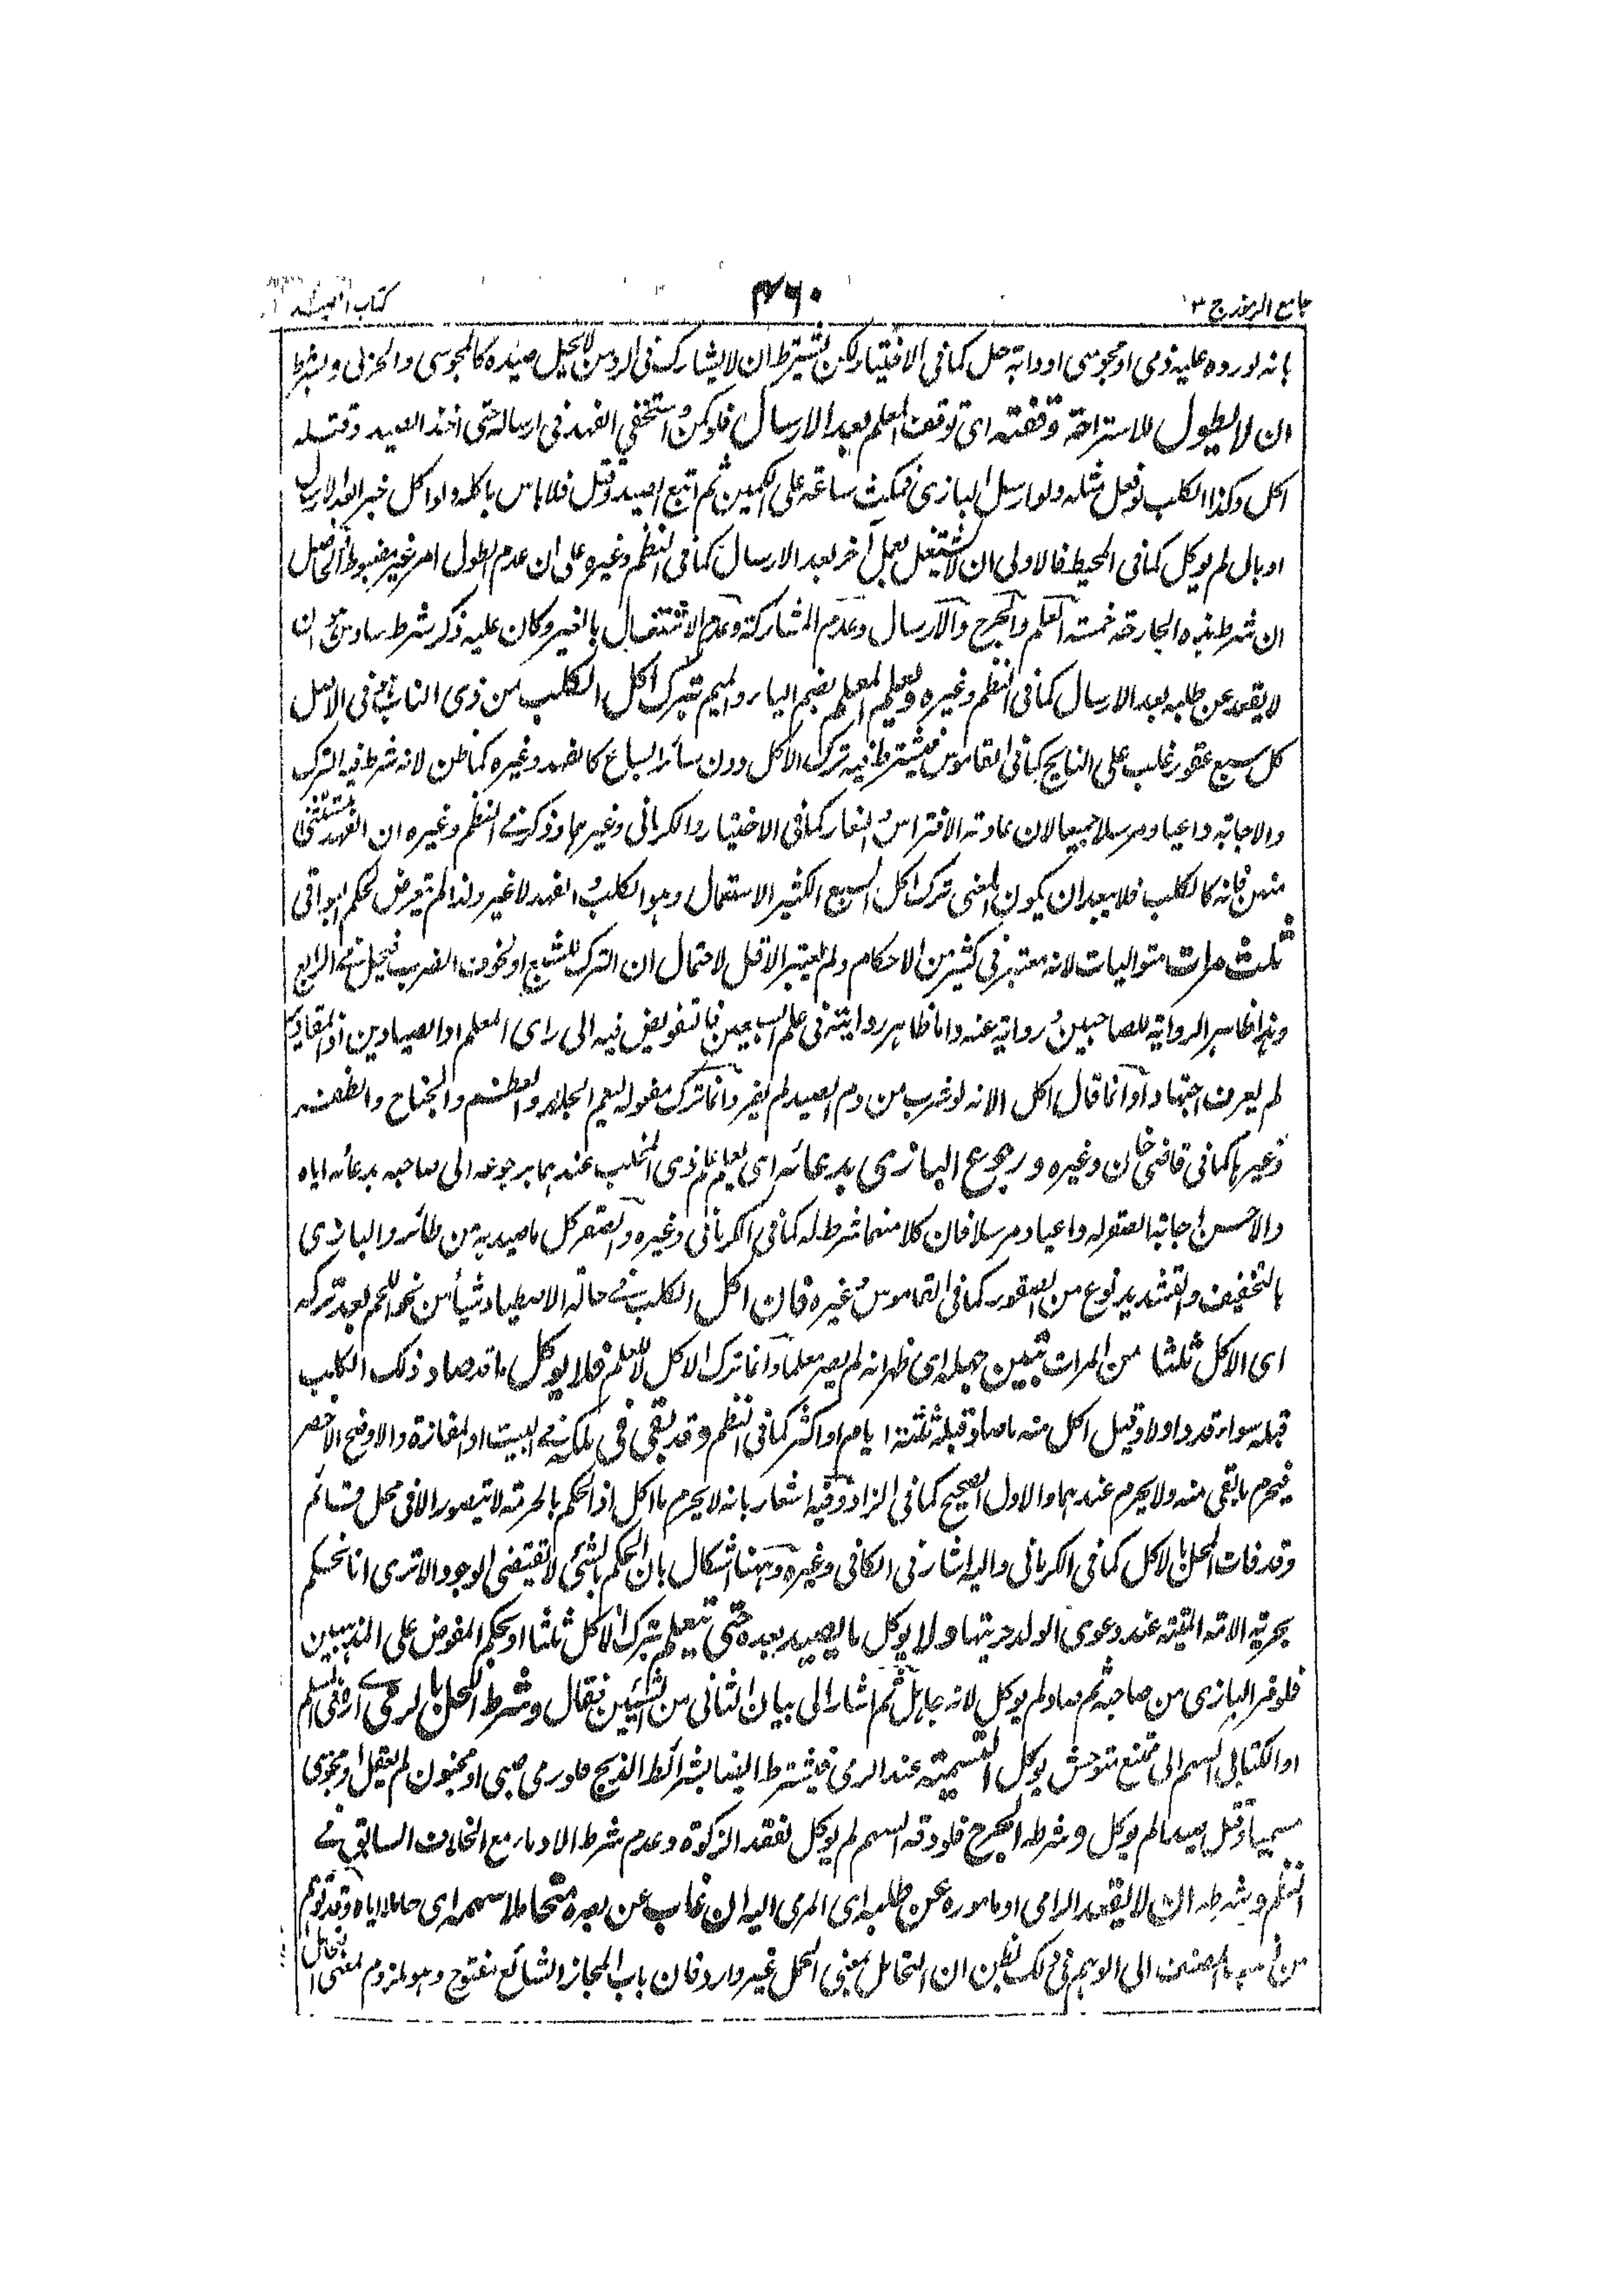 جامع الرموز ج ٣
٣٦٠
كتاب الصيد
بانه لو رده عليه ذمى او مجوسى او دابة حل كما فى الاختيار لكن يشترط ان لا يشارك فى الرد من لا يحل صيده كالمجوسى والحربى ويشترط
ان لا يطول للاستراحة وقفته اى توقف المعلم بعد الارسال فلو كمن واستخفى الفهد فى ارساله حتى اخذ الصيد وقتله
اكل وكذا الكلب لو فعل مثله ولو ارسل البازى فمكث ساعة على الكمين ثم اتبع الصيد وقتل فلا باس باكله ولو اكل خبزا بعد الارسال
او بال لم يوكل كما فى المحيط فالاولى ان لا يشتغل بعمل آخر بعد الارسال كما فى النظم وغيره على ان عدم الطول امر غير مضبوط
ان شرط هذه الجارحة خمسة العلم والجرح والارسال وعدم المشاركة وعدم الاشتغال بالغير وكان عليه ذكر شرط سادس
لا يقعد عن طلبه بعد الارسال كما فى النظم وغيره ويعلم المعلم بضم الياء والميم بترك اكل الكلب من ذى الناب فى الاصل
كل سبع عقور غلب على النابح كما فى القاموس فيشترط فيه ترك الاكل دون سائر السباع كالفهد وغيره كما ظن لانه شرط فيه الترك
والاجابة داعيا ومرسلا جميعا لان عادته الافتراس والنفار كما فى الاختيار والكرمانى وغيرهما وذكر فى النظم وغيره ان الفهد مستثنى
منهن فانه كالكلب فلا يبعد ان يكون المعنى ترك اكل السبع الكثير الاستعمال وهو الكلب والفهد لا غير ولذا لم يتعرض لحكم البواقى
ثلث مرات متواليات لانه معتبر فى كثير من الاحكام ولم يعتبر الاقل لاحتمال ان الترك للشبع او لخوف الضرب فيحل فى الرابع
وهذا ظاهر الرواية للصاحبين ورواية عنه واما ظاهر روايته فى علم السبعين فالتفويض فيه الى راى المعلم او الصيادين اذ المقادير
لم يعرف اجتهادا وانما قال اكل الانه لو شرب من دم الصيد لم يضر وانما ترك مفعوله ليعم الجلد والعظم والجناح والظفر
وغيرها كما فى قاضى خان وغيره ورجوع البازى بدعائه اى يعلم علم ذى المخلب عندهما برجوعه الى صاحبه بدعائه اياه
والاحسن اجابة الصقر له داعيا ومرسلا فان كلا منهما شرط له كما فى الكرمانى وغيره والصقر كل ما صيد به من طائر والبازى
بالتخفيف والتشديد نوع من الصقور كما فى القاموس وغيره فان اكل الكلب فى حالة الاصطياد شيأ من نحو اللحم بعد تركه
اى الاكل ثلثا من المرات تبين جهله اى ظهر انه لم يصر معلما وانما ترك الاكل لا للعلم فلا يوكل ما قد صاد ذلك الكلب
قبله سواء قدد اولا وقيل اكل منه ما صاد قبله ثلثة ايام او اكثر كما فى النظم وقد بقى فى ملكه فى البيت او المفازة والاوضح الاخصر
فيحرم ما بقى منه ولا يحرم عندهما والاول الصحيح كما فى الزاد وفيه اشعار بانه لا يحرم ما اكل اذ الحكم بالحرمة لا يتصور الا فى محل قائم
وقد فات المحل بالاكل كما فى الكرمانى واليه اشار فى الكافى وغيره وههنا اشكال بان الحكم بالشئ لا يقتضى الوجود الا ترى انا نحكم
بحرية الامة الميتة عند دعوى الولد حريتها ولا يوكل ما يصيد بعده حتى يتعلم بترك الاكل ثلثا او بحكم المفوض على المذهبين
فلو فر البازى من صاحبه ثم صاد لم يوكل لانه جاهل ثم اشار الى بيان الثانى من الشيئين فقال وشرط للحل بالرمى اى رمى المسلم
او الكتابى السهم الى ممتنع متوحش يوكل التسمية عند الرمى فيشترط ايضا بشرائط الذبح فلو رمى صبى او مجنون لم يعقل او مجوسى
مسميا وقتل صيدا لم يوكل وشرط الجرح فلو دقه السهم لم يوكل لفقد الزكوة وعدم شرط الادماء مع الخلاف السابق فى
النظم وشرط ان لا يقعد الرامى او مامور عن طلبه اى المرمى اليه ان غاب عن بصره متحاملا سهمه اى حاملا اياه وقد توهم
من المصنف الى الوهم فى ذلك لظن ان التحامل بمعنى الحمل غير وارد فان باب المجاز الشائع مفتوح وهو ملزوم لمعنى التحامل